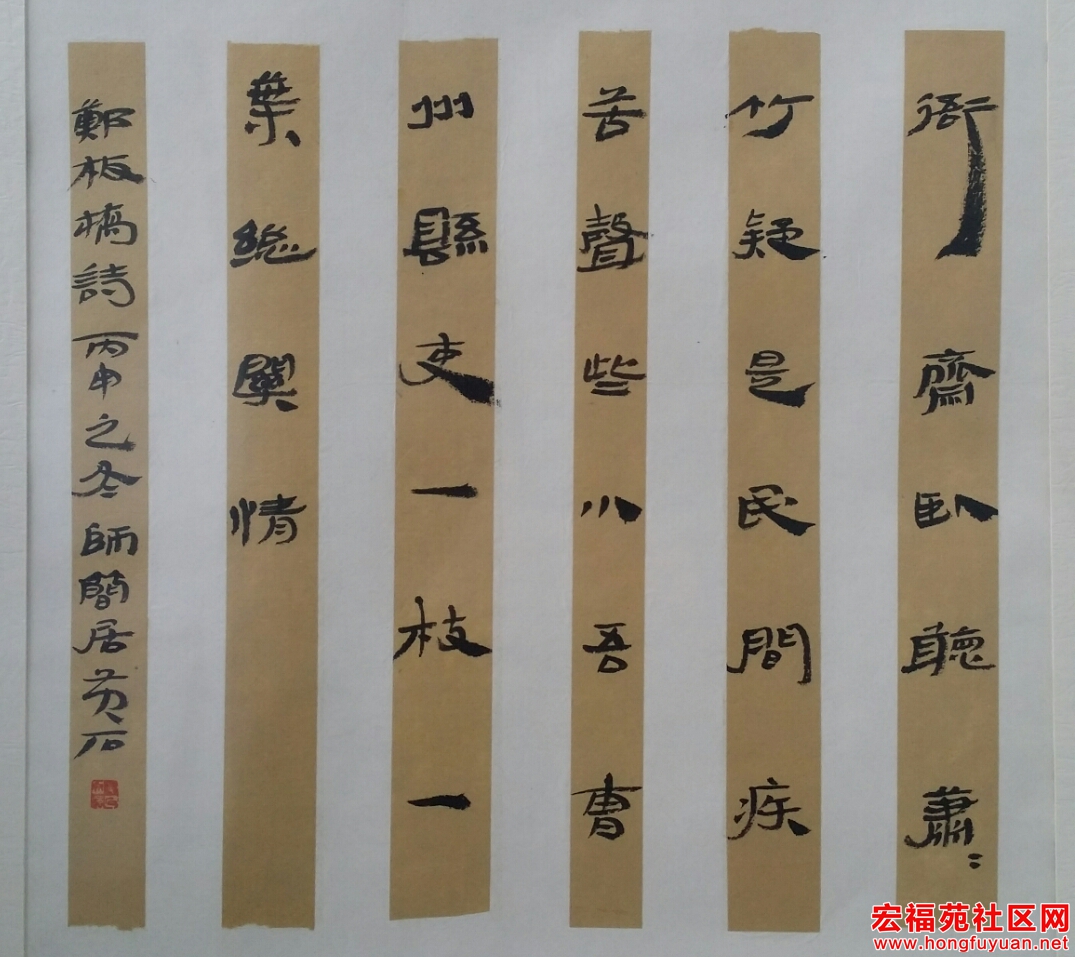 衙齋卧聽蕭〻
竹疑是民間疾
苦聲些小吾曹
州縣吏一枝一
葉總關情
鄭板橋詩丙申之冬師簡居黄石
宏福苑社区网
www.hongfuyuan.net